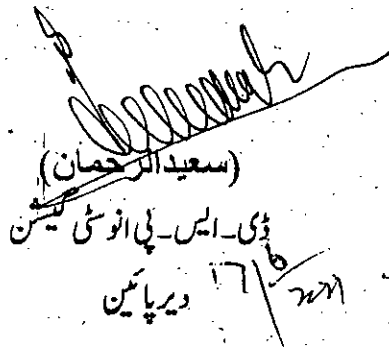 (سعیدالرحمان)
ڈی۔ایس۔پی انوسٹی گیشن
دیر پائین